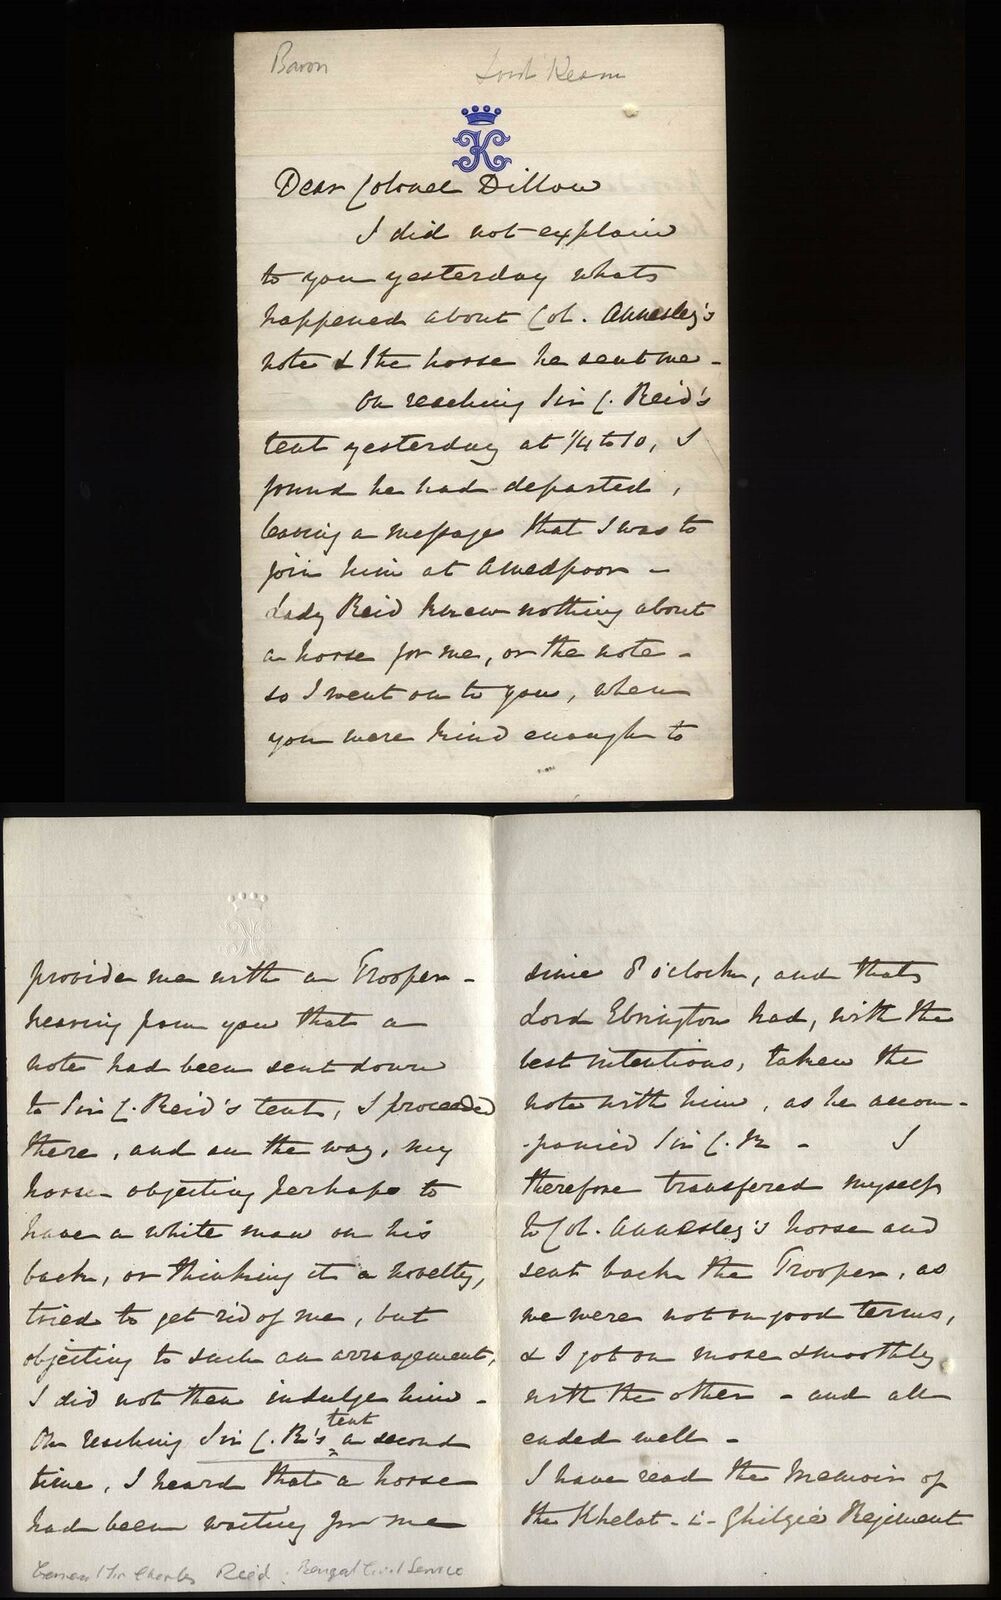 Baron Lord Keane
K
Dear Colonel Dillon
I did not explain
to you yesterday what
happened about Col. Annesley's
note & the horse he sent me -
On reaching Sir C. Reid's
tent yesterday at 1/4 to 10, I
found he had departed,
leaving a message that I was to
join him at Amedpoor -
Lady Reid knew nothing about
a horse for me, or the note -
so I went on to you, when
you were kind enough to
provide me with a Trooper -
hearing from you that a
note had been sent down
to Sir C. Reid's tent, I proceeded
there, and on the way, my
horse objecting perhaps to
have a white man on his
back, or thinking it a novelty,
tried to get rid of me, but
objecting to such an arrangement,
I did not then indulge him -
On reaching Sir C. R's tent a second
time, I heard that a horse
had been waiting for me
General Sir Charles Reid. Bengal Civil Service
since 8 o'clock, and that
Lord Ebrington had, with the
best intentions, taken the
note with him, as he accom-
-panied Sir C. R - I
therefore transfered myself
to Col. Annesley's horse and
sent back the Trooper, as
we were not on good terms,
& I got on more smoothly
with the other - and all
ended well -
I have read the Memoir of
the Khelat-i-Ghilzie Regiment